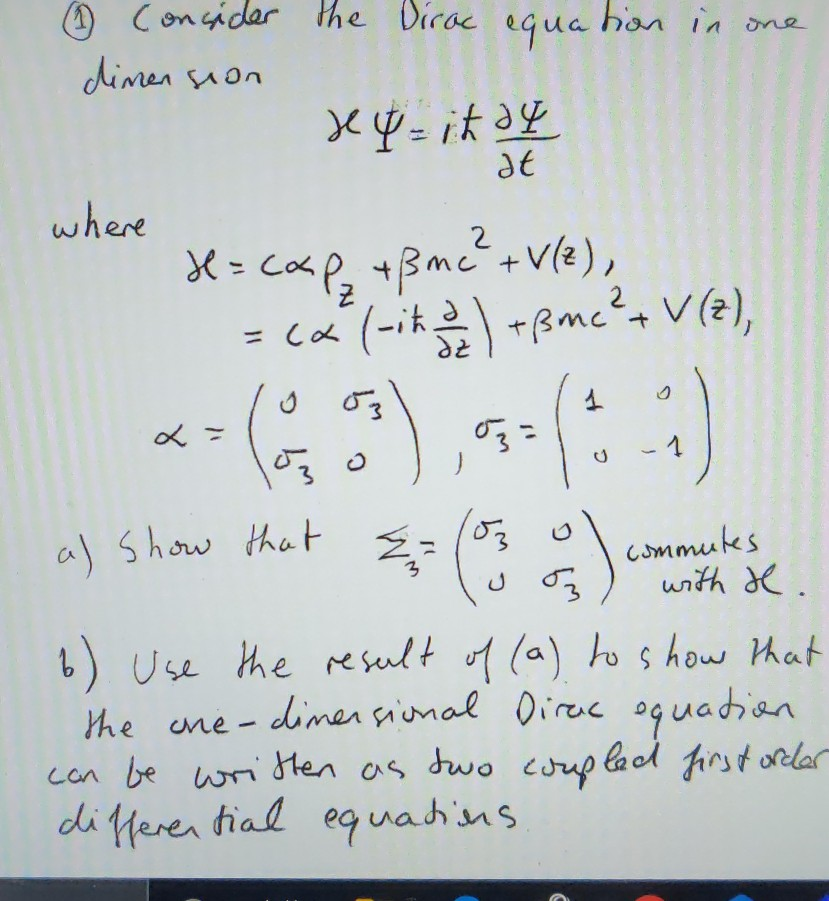 ① Consider the Dirac equation in one
dimension
ℋΨ = iħ ∂Ψ/∂t
where
ℋ = cαp_z + βmc² + V(z),
= cα (-iħ ∂/∂z) + βmc² + V(z),
α = (0 σ₃; σ₃ 0), σ₃ = (1 0; 0 -1)
a) Show that Σ₃ = (σ₃ 0; 0 σ₃) commutes
with ℋ.
b) Use the result of (a) to show that
the one-dimensional Dirac equation
can be written as two coupled first order
differential equations